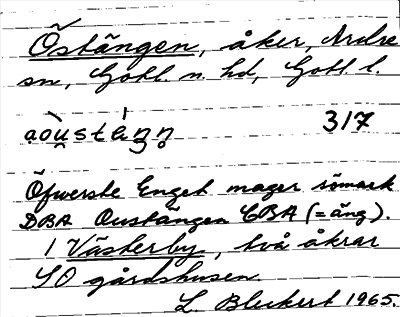 Östängen, åker, Ardre
sn, Gotl. n. hd, Gotl. l.
317
Öfwerste Enget mager sömark
DBA Oustängen CBA (= äng).
1 Västerby, två åkrar
SO gårdshusen.
L. Bleckert 1965.